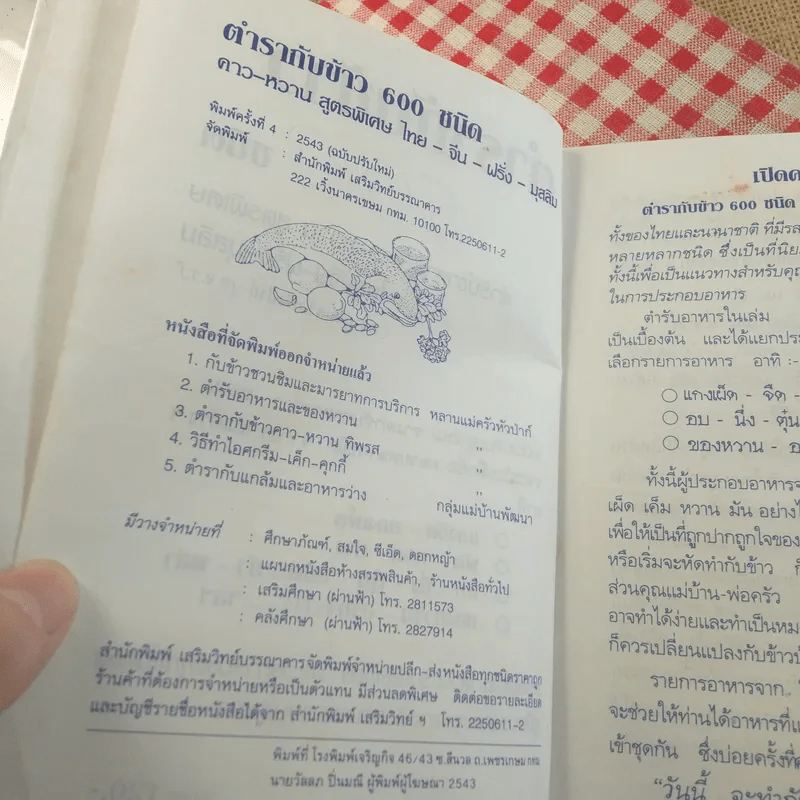 ตำรากับข้าว 600 ชนิด
คาว-หวาน สูตรพิเศษ ไทย - จีน - ฝรั่ง - มุสลิม
พิมพ์ครั้งที่ 4 : 2543 (ฉบับปรับใหม่)
จัดพิมพ์ : สำนักพิมพ์ เสริมวิทย์บรรณาคาร
222 เวิ้งนาครเขษม กทม. 10100 โทร.2250611-2
หนังสือที่จัดพิมพ์ออกจำหน่ายแล้ว
1. กับข้าวชวนชิมและมารยาทการบริการ หลานแม่ครัวหัวป่าก์
2. ตำรับอาหารและของหวาน "
3. ตำรากับข้าวคาว-หวาน ทิพรส "
4. วิธีทำไอศกรีม-เค็ก-คุกกี้ "
5. ตำรากับแกล้มและอาหารว่าง กลุ่มแม่บ้านพัฒนา
มีวางจำหน่ายที่ : ศึกษาภัณฑ์, สมใจ, ซีเอ็ด, ดอกหญ้า
: แผนกหนังสือห้างสรรพสินค้า, ร้านหนังสือทั่วไป
: เสริมศึกษา (ผ่านฟ้า) โทร. 2811573
: คลังศึกษา (ผ่านฟ้า) โทร. 2827914
สำนักพิมพ์ เสริมวิทย์บรรณาคารจัดพิมพ์จำหน่ายปลีก-ส่งหนังสือทุกชนิดราคาถูก
ร้านค้าที่ต้องการจำหน่ายหรือเป็นตัวแทน มีส่วนลดพิเศษ ติดต่อขอรายละเอียด
และบัญชีรายชื่อหนังสือได้จาก สำนักพิมพ์ เสริมวิทย์ ฯ โทร. 2250611-2
พิมพ์ที่ โรงพิมพ์เจริญกิจ 46/43 ซ.สีนวล ถ.เพชรเกษม กทม
นายวัลลภ ปิ่นมณี ผู้พิมพ์ผู้โฆษณา 2543
เปิดค
ตำรากับข้าว 600 ชนิด
ทั้งของไทยและนานาชาติ ที่มีรส
หลายหลากชนิด ซึ่งเป็นที่นิย
ทั้งนี้เพื่อเป็นแนวทางสำหรับคุณ
ในการประกอบอาหาร
ตำรับอาหารในเล่ม
เป็นเบื้องต้น และได้แยกประ
เลือกรายการอาหาร อาทิ :-
○ แกงเผ็ด - จืด -
○ อบ - นึ่ง - ตุ๋น
○ ของหวาน - อ
ทั้งนี้ผู้ประกอบอาหารจ
เผ็ด เค็ม หวาน มัน อย่างไ
เพื่อให้เป็นที่ถูกปากถูกใจของ
หรือเริ่มจะหัดทำกับข้าว ก็
ส่วนคุณแม่บ้าน-พ่อครัว
อาจทำได้ง่ายและทำเป็นหม
ก็ควรเปลี่ยนแปลงกับข้าวบ้
รายการอาหารจาก
จะช่วยให้ท่านได้อาหารที่แ
เข้าชุดกัน ซึ่งบ่อยครั้งที่
"วันนี้ จะทำกับ